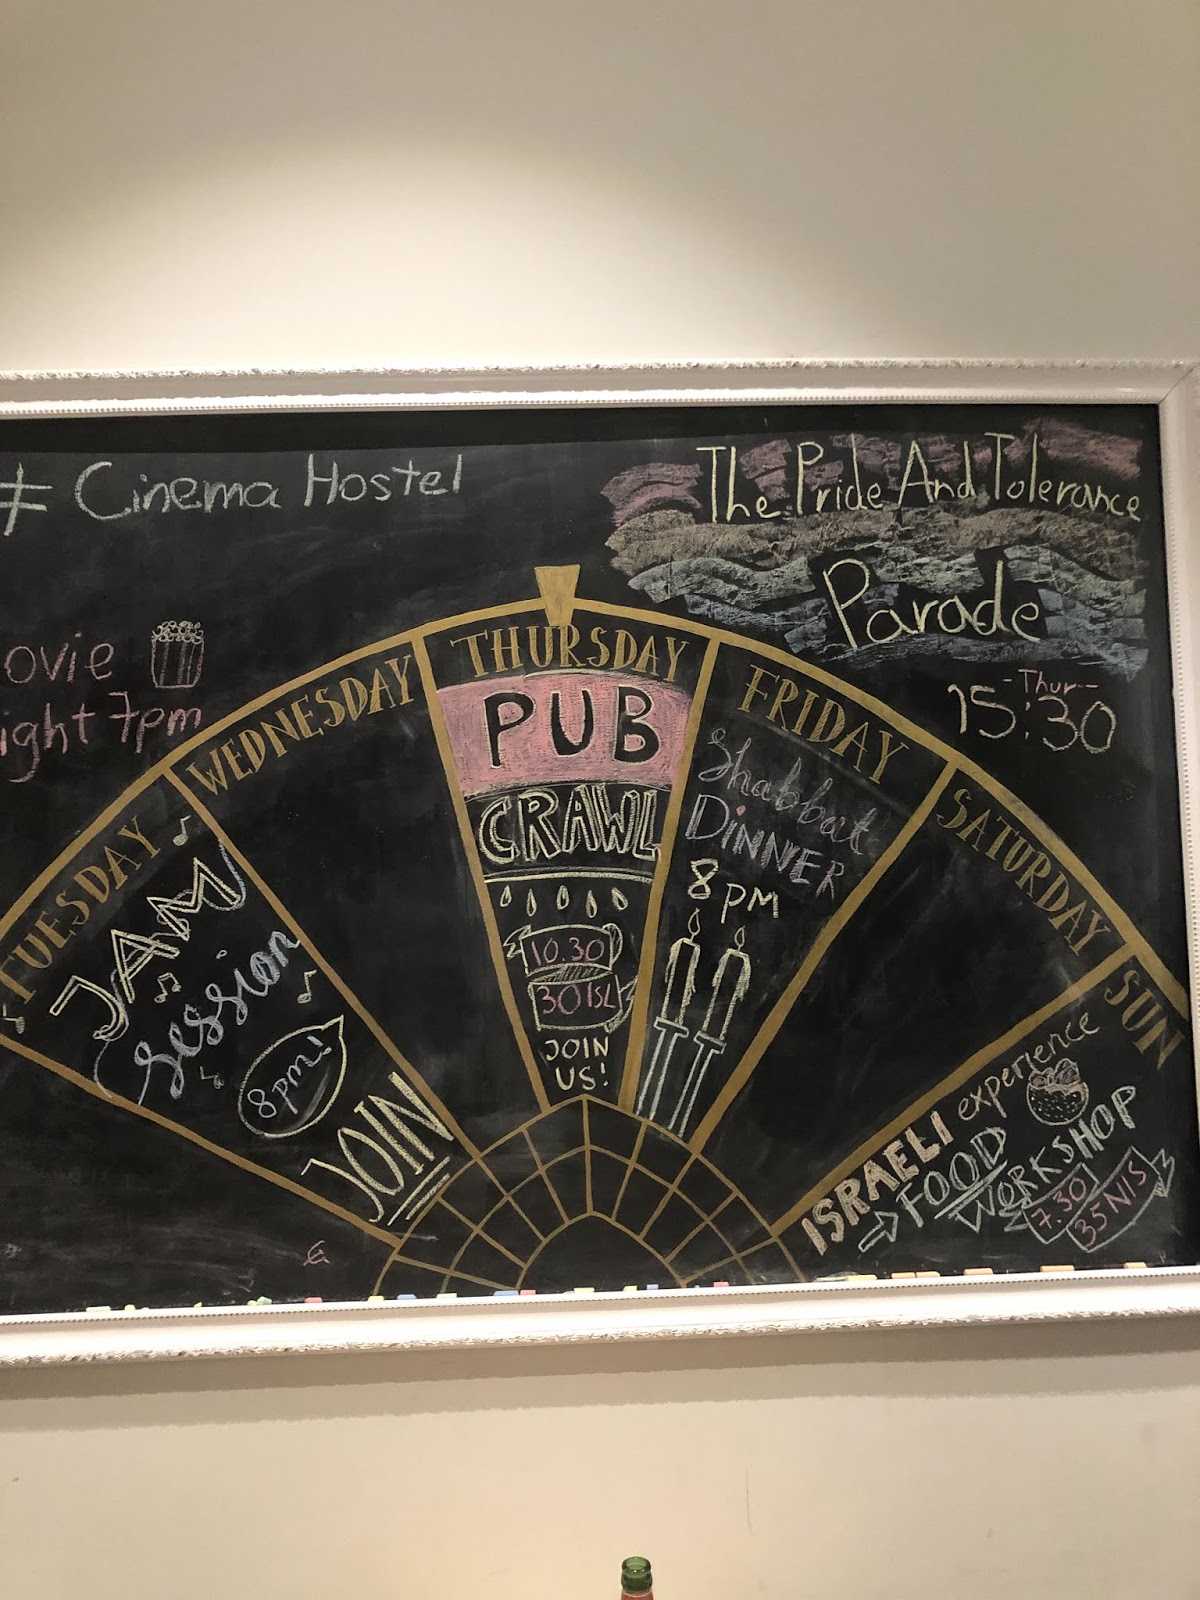 # Cinema Hostel
The Pride And Tolerance
Parade
Thur
15:30
ovie
ight 7pm
TUESDAY
JAM
session
8pm!
JOIN
WEDNESDAY
THURSDAY
PUB
CRAWL
10.30
30 ISL
JOIN
US!
FRIDAY
Shabbat
DiNNER
8 pm
SATURDAY
SUN
ISRAELI experience
FOOD
WORKSHOP
7.30
35 NIS